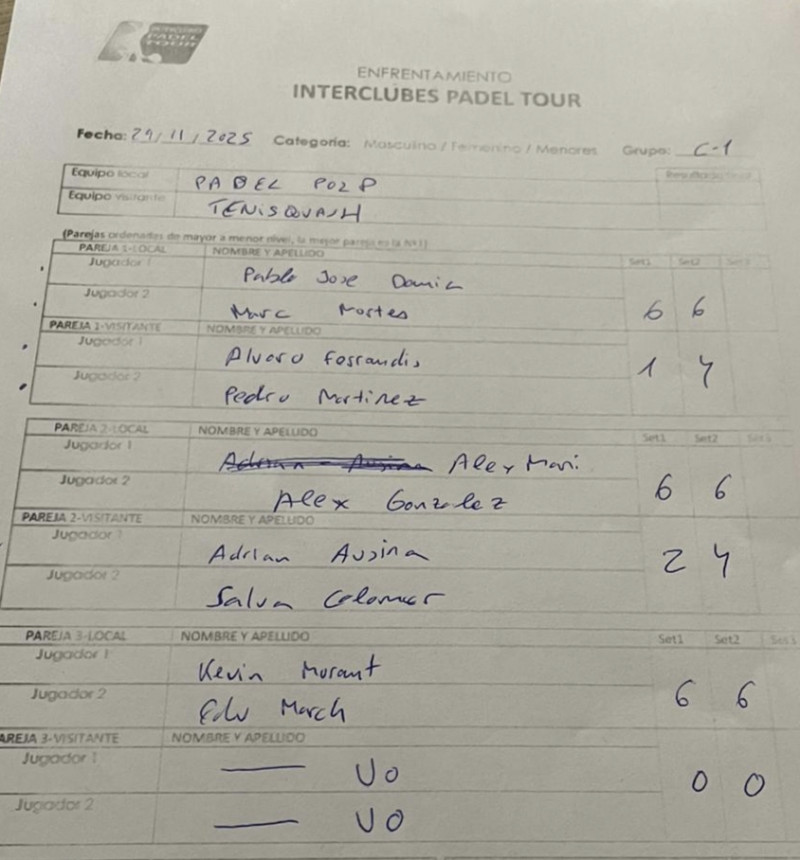 PADEL
TOUR
ENFRENTAMIENTO
INTERCLUBES PADEL TOUR
Fecha: 29/11/2025 Categoría: Masculino / Femenino / Menores Grupo: C-1
Equipo local PADEL POZP
Equipo visitante TENISQUASH
(Parejas ordenadas de mayor a menor nivel, la mejor pareja es la Nº1)
PAREJA 1-LOCAL NOMBRE Y APELLIDO Set1 Set2 Set3
Jugador 1 Pablo Jose
Jugador 2 Marc 6 6
PAREJA 1-VISITANTE NOMBRE Y APELLIDO
Jugador 1 Alvaro Ferrandis 1 4
Jugador 2 Pedro Martinez
PAREJA 2-LOCAL NOMBRE Y APELLIDO Set1 Set2 Set3
Jugador 1 Alex Mari
Jugador 2 Alex Gonzalez 6 6
PAREJA 2-VISITANTE NOMBRE Y APELLIDO
Jugador 1 Adrian Ausina 2 4
Jugador 2 Salva Colomer
PAREJA 3-LOCAL NOMBRE Y APELLIDO Set1 Set2 Set3
Jugador 1 Kevin Morant
Jugador 2 Edu March 6 6
AREJA 3-VISITANTE NOMBRE Y APELLIDO
Jugador 1 — VO 0 0
Jugador 2 — VO